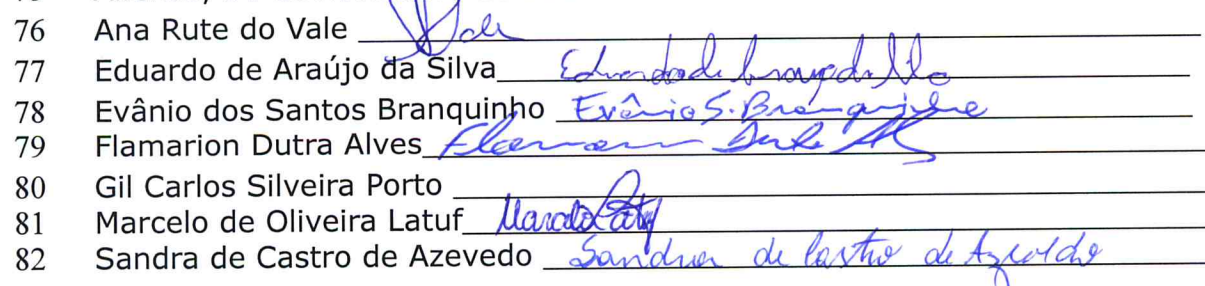 76 Ana Rute do Vale Vale
77 Eduardo de Araújo da Silva Eduardo de Araujo da Silva
78 Evânio dos Santos Branquinho Evânio S. Branquinho
79 Flamarion Dutra Alves Flamarion Dutra
80 Gil Carlos Silveira Porto
81 Marcelo de Oliveira Latuf Marcelo Latuf
82 Sandra de Castro de Azevedo Sandra de Castro de Azevedo